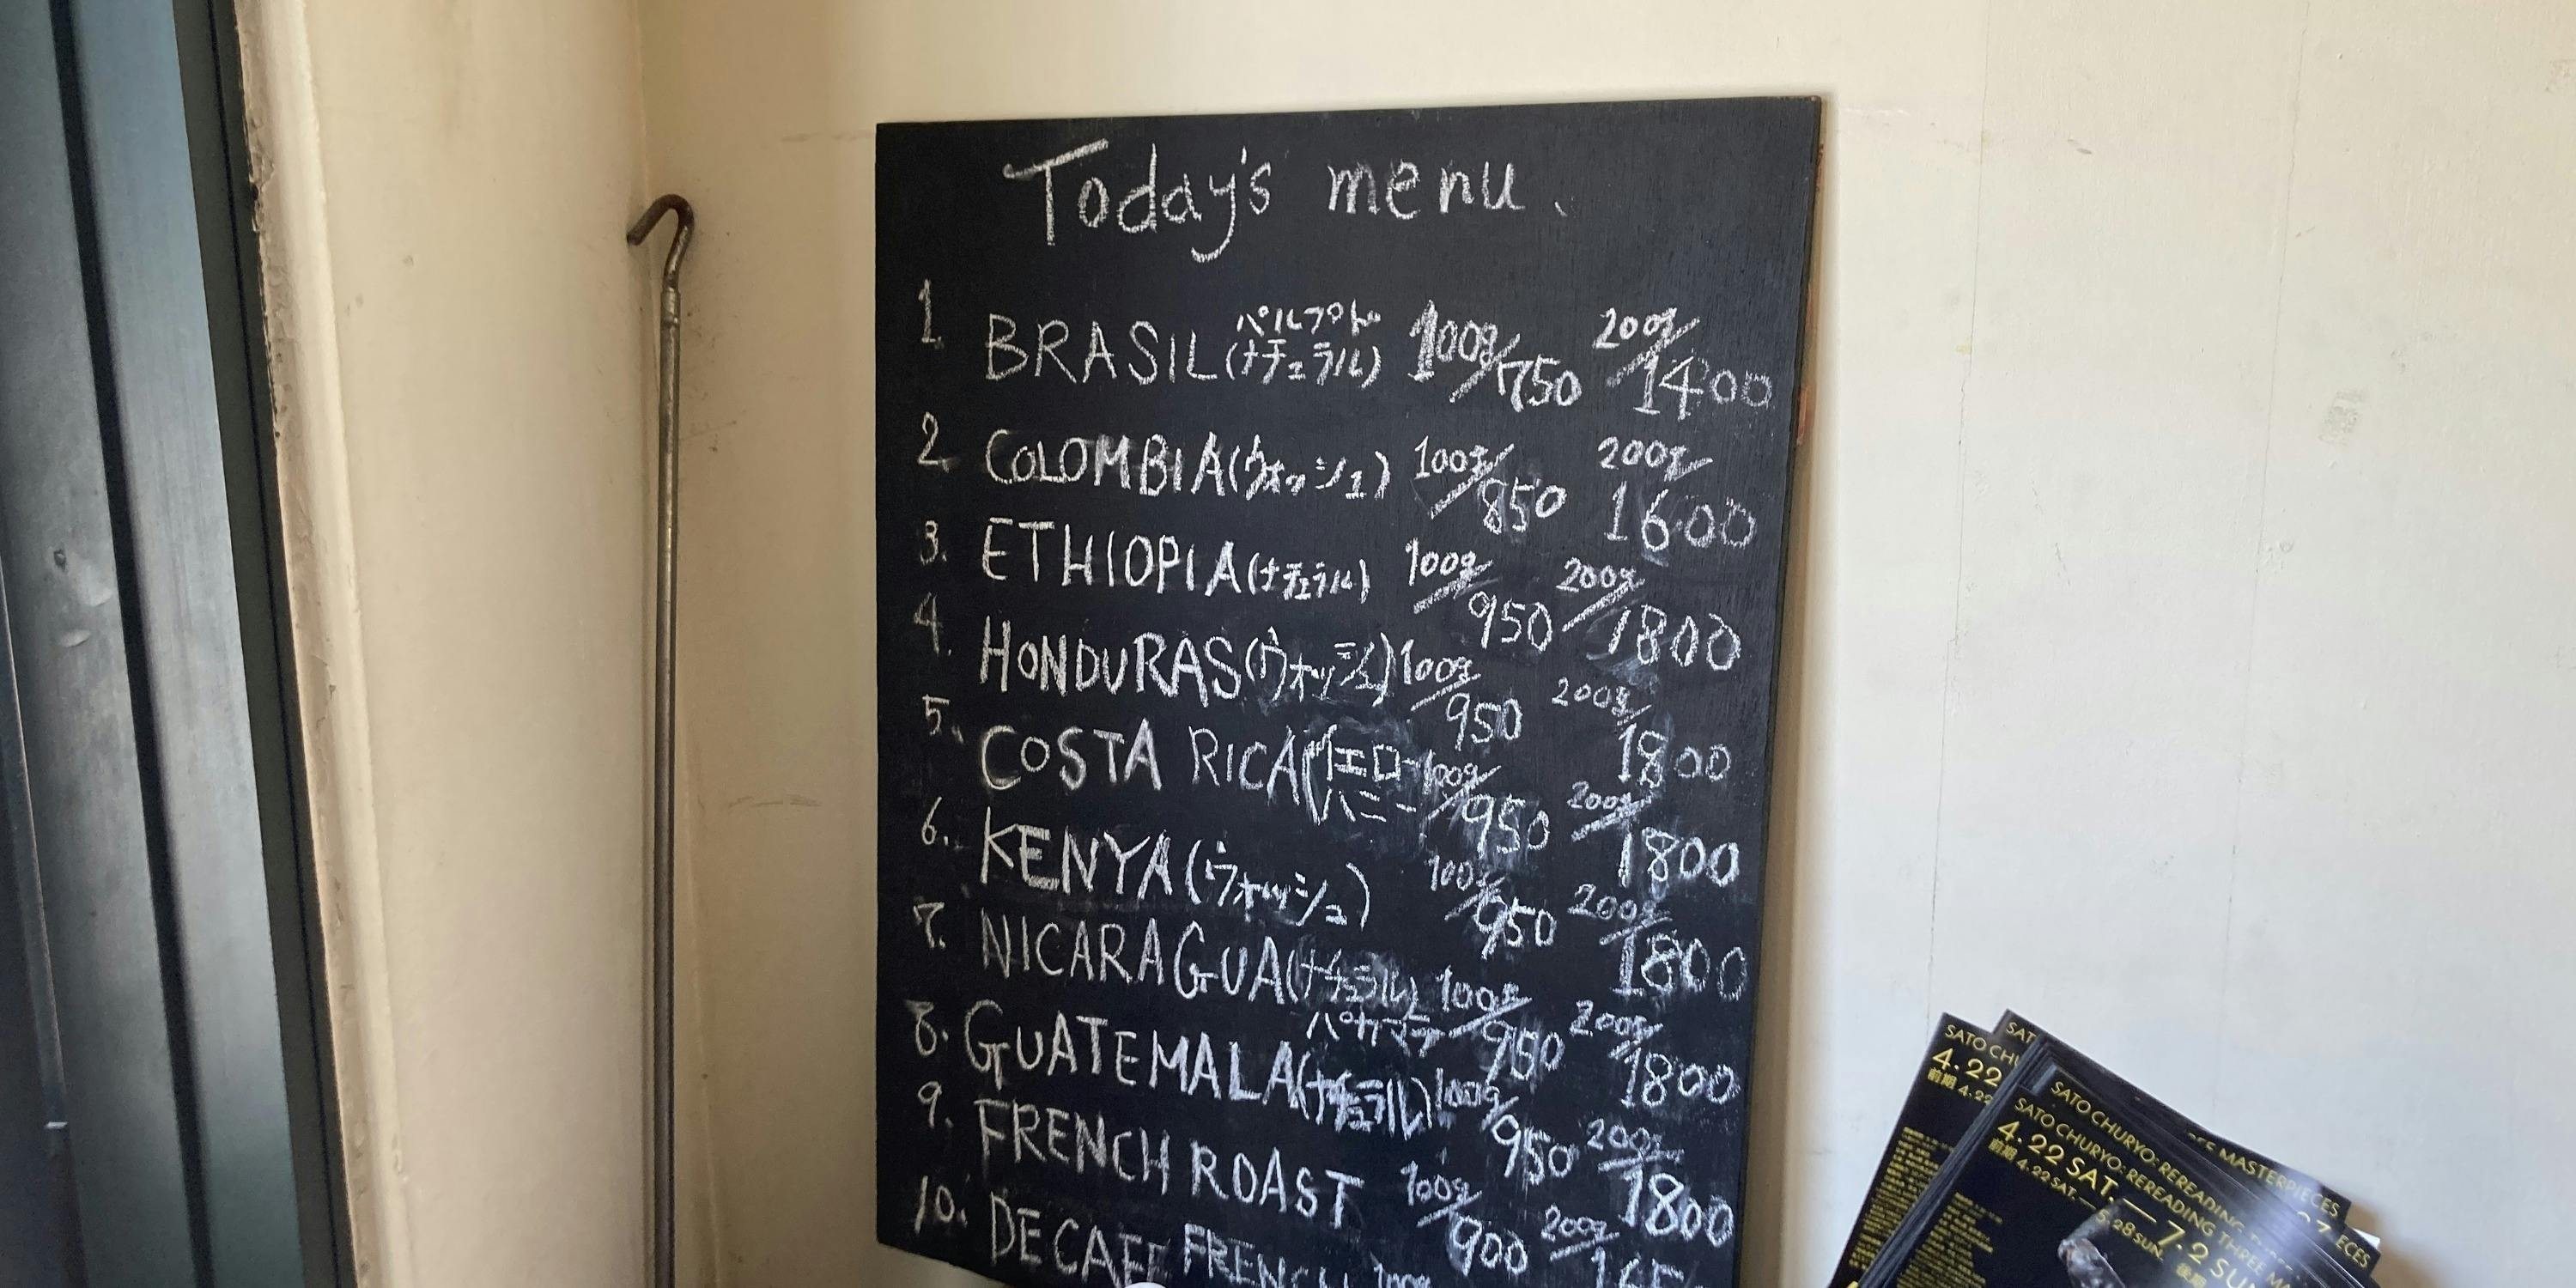 Today's menu.
1. BRASIL パルプト (ナチュラル) 100g/750 200g/1400
2. COLOMBIA (ウォッシュ) 100g/850 200g/1600
3. ETHIOPIA (ナチュラル) 100g/950 200g/1800
4. HONDURAS (ウォッシュ) 100g/950 200g/1800
5. COSTA RICA (イエローハニー 100g/950 200g/1800
6. KENYA (ウォッシュ) 100g/950 200g/1800
7. NICARAGUA (ナチュラル) パカマラ 100g/950 200g/1800
8. GUATEMALA (ナチュラル) 100g/950 200g/1800
9. FRENCH ROAST 100g/900 200g/
10. DECAFE FRENCH 100g
SATO CHU
4.22
前期 4.22
SAT
SATO CHURYO: REREADING
MASTERPIECES
SATO CHURYO: REREADING THREE MA
ECES
4.22 SAT.—7.2 SUN
前期 4.22 SAT.—5.28 SUN.
後期